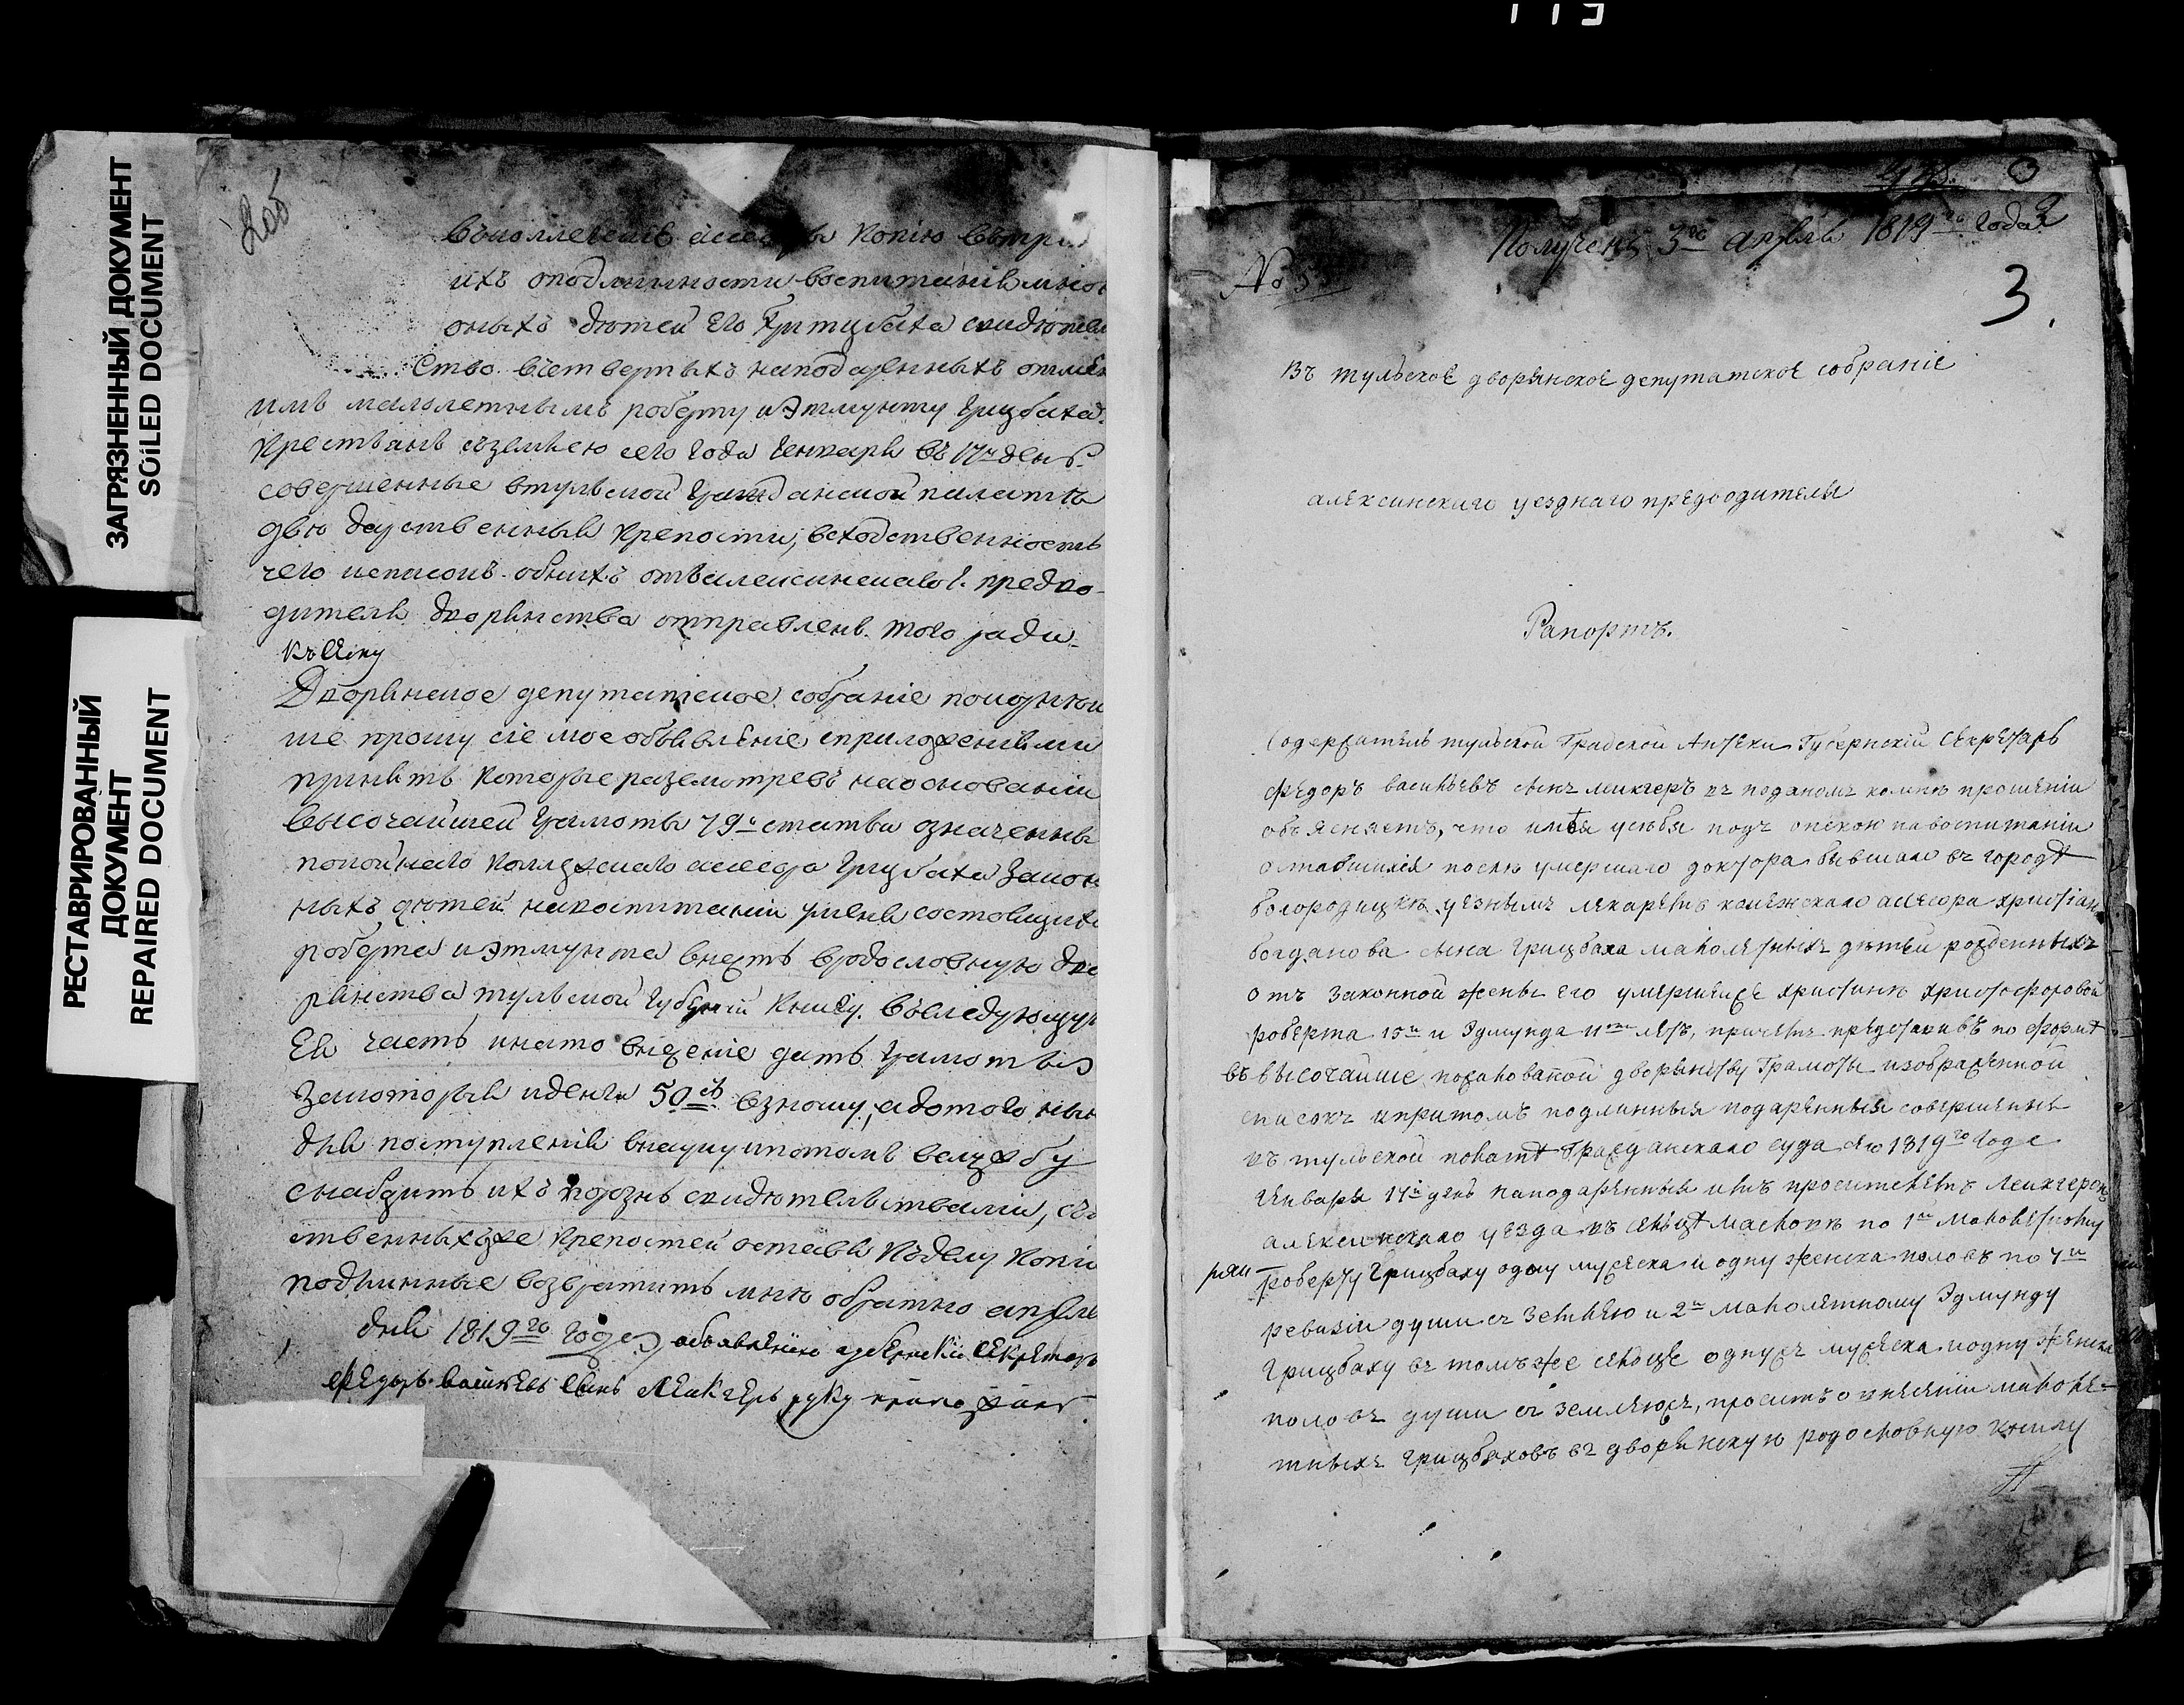 ЗАГРЯЗНЕННЫЙ ДОКУМЕНТ
SOILED DOCUMENT
РЕСТАВРИРОВАННЫЙ
ДОКУМЕНТ
REPAIRED DOCUMENT
копию
ихъ оподлинности воспитания
оныхъ дѣтей его Грицбаха свидѣтель
ство вчетвертыхъ наподаренныхъ
имъ малолетнымъ роберту иэтмунту Грицбаха
крестьянъ сземлею сего года Генваря въ 17 день
совершенные втульской Гражданской палате
две дарственный крепости, всходственность
чего исписокъ обнихъ предво-
дителя дворянства отправленъ. того ради
Дворянское депутатское собрание покорнѣй
ше прошу сие мое обьявление сприложениями
принять которые разсмотревъ наосновании
Высочайшей Грамоты 79 статьи означенны
покойнаго Коллежскаго асесора Грицбаха Закон
ныхъ дѣтей навоспитании уменя состоящихъ
роберта иэтмунта внесть вродословную дво
рянства тульской Губернии Книгу. вследующую
Ея часть инато внесение дать Грамоты
Закоторыя иденги 50 взношу, адотого
дня поступления внауку ипотомъ вслужбу
снабдить ихъ порознь свидѣтельствами,
ственныхже крепостей оставя Кделу Копии
подлинные возвратить мнѣ обратно апреля
дня 1819го года обьявлению губернский секретарь
федоръ васильевъ сынъ лейкгеръ руку приложилъ
Полученъ 3го апреля 1819го года
3
3.
Въ тульское дворянское депутатское собрание
алексинскаго уезднаго предводителя
Рапортъ.
Содержатель тульской Градской Аптеки Губернский Секретарь
федоръ васильевъ сынъ леикгеръ въ поданомъ комнѣ прошении
объясняетъ, что имѣя усебя подъ опекою навоспитании
оставшихся послѣ умершаго доктора бывшаго въ городѣ
богородицкѣ уезнымъ лекаремъ колежскаго асесора христиан
богданова сына Грицбаха малолетныхъ дѣтей рожденныхъ
отъ законной жены его умершейже христины христофоровой
роберта 15ти и Эдмунда 11ти летъ, причемъ представивъ по формѣ
въ высочайше пожалованой дворянству Грамоты изображенной
списокъ ипритомъ подлинныя подаренныя совершенны
въ тульской палатѣ Гражданскаго суда сего 1819го года
Генваря 17й день наподаренныя имъ просителемъ леикгеромъ
алексинскаго уезда въ сельцѣ масловѣ по 1й малолетному
роберту Грицбаху одну мужска и одну женска половъ по 7й
ревизии души съ землею и 2й малолетному Эдмунду
Грицбаху въ томъже сельце однужъ мужска иодну женска
половъ души съ землеюжъ, проситъ о внесении малоле-
тныхъ Грицбаховъ въ дворянскую родословную книгу